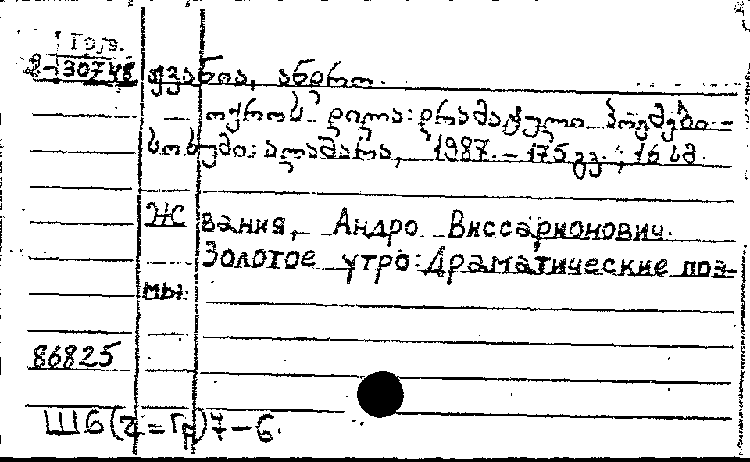 2-30748 ჟვანია, ანდრო.
ოქროს დილა: დრამატული პოემები. -
სოხუმი: ალაშარა, 1987. - 175 გვ.; 16 სმ.
Жвания, Андро Виссарионович.
Золотое утро: Драматические поэ-
мы.
86825
Ш6(2=Гр)7-6.